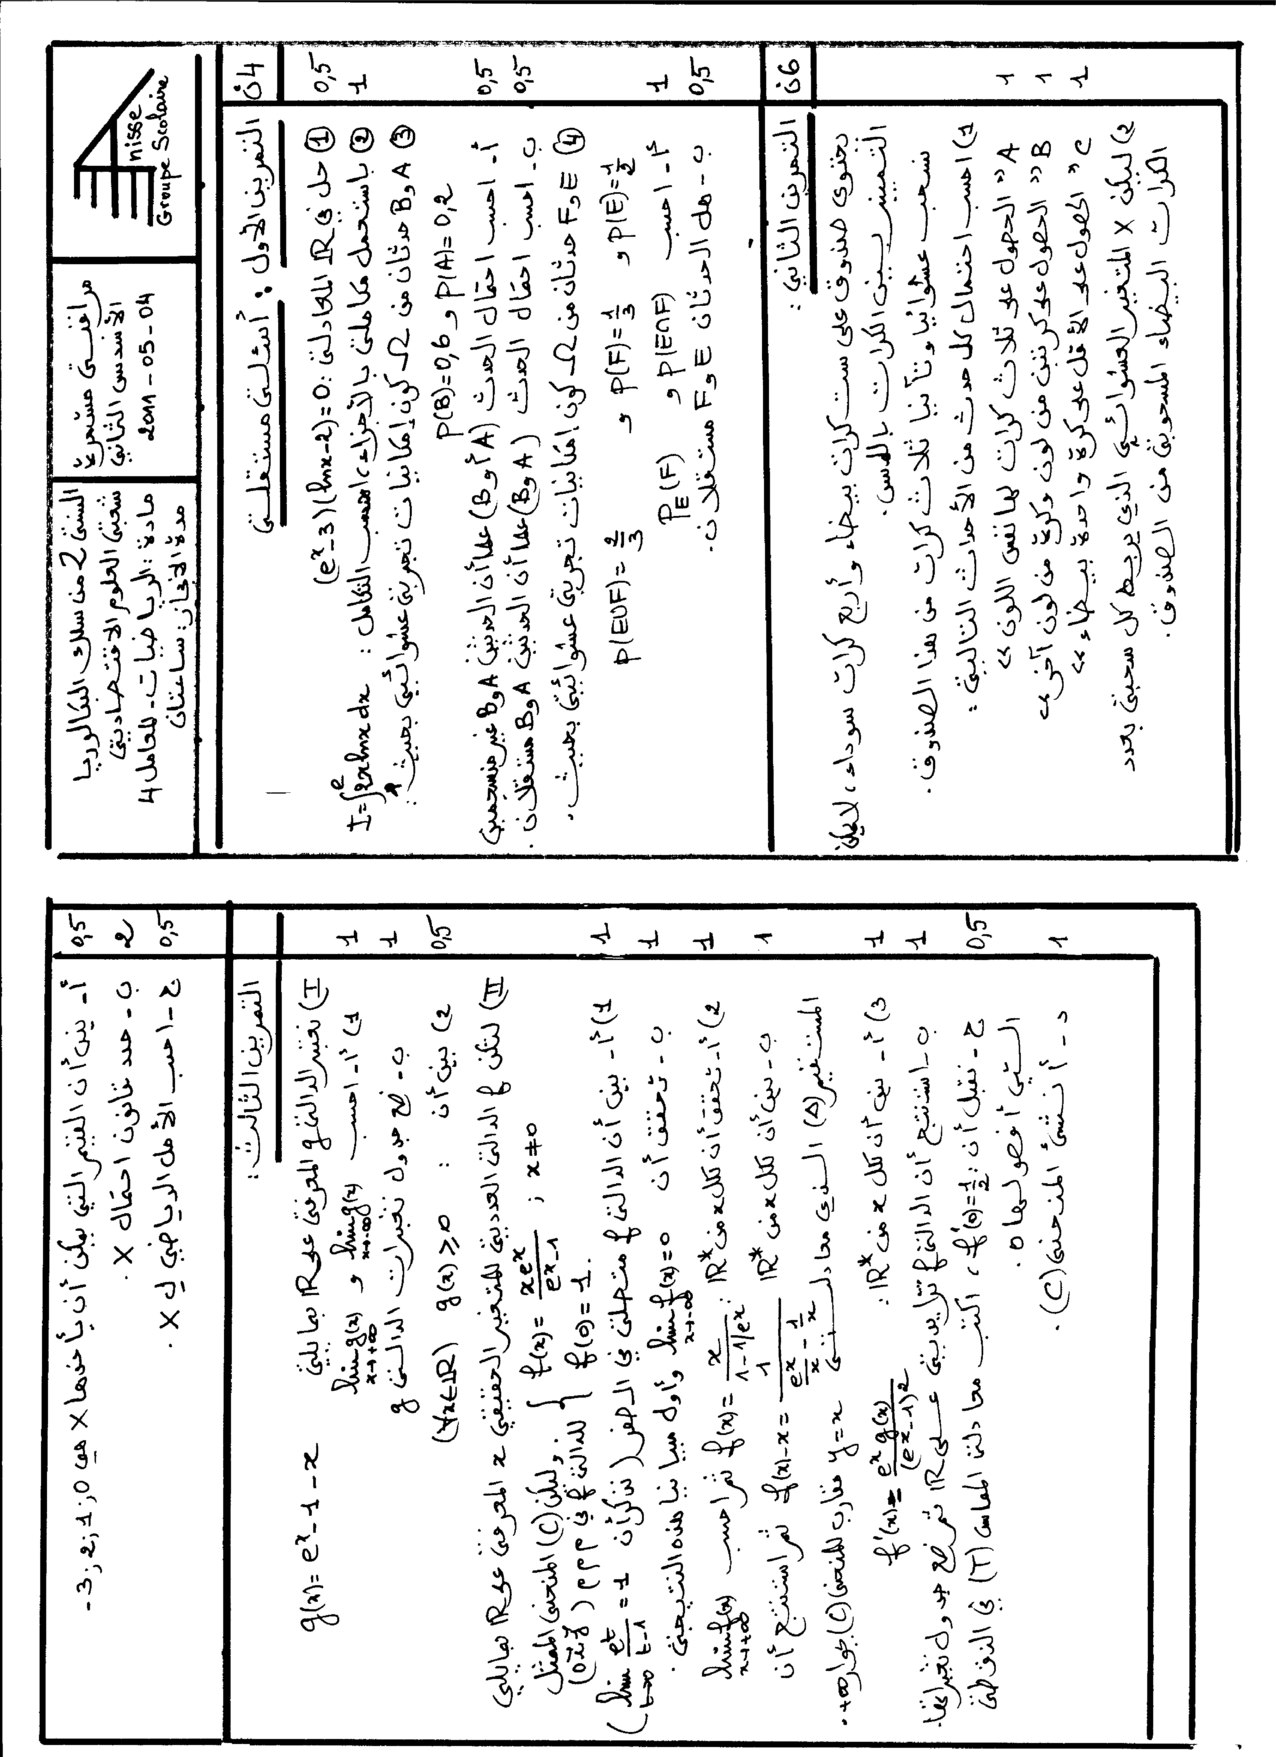 السنة 2 من سلك البكالوريا
شعبة العلوم الاقتصادية
مادة: الرياضيات - المعامل 4
مدة الانجاز: ساعتان
مراقبة مستمرة
الأسدس الثاني
2011 - 05 - 04
nisse
Groupe Scolaire
التمرين الأول : أسئلة مستقلة
4ن
① حل في IR المعادلة : (e^x - 3)(ln x - 2) = 0
0,5
② باستعمال مكاملة بالأجزاء، احسب التكامل : I = ∫_1^e 2x ln x dx
1
③ A و B حدثان من Ω كون إمكانيات تجربة عشوائية بحيث :
P(B) = 0,6 و P(A) = 0,2
أ - احسب احتمال الحدث (A أو B) علما أن الحدثين A و B غير منسجمين
0,5
ب - احسب احتمال الحدث (A و B) علما أن الحدثين A و B مستقلان.
0,5
④ E و F حدثان من Ω كون إمكانيات تجربة عشوائية بحيث.
p(E∪F) = 2/3 و p(F) = 1/3 و p(E) = 1/2
أ - احسب p(E∩F) و P_E(F)
1
ب - هل الحدثان E و F مستقلان.
0,5
التمرين الثاني :
6ن
يحتوي صندوق على ست كرات بيضاء وأربع كرات سوداء، لا يمكن
التمييز بين الكرات باللمس.
نسحب عشوائيا وتآنيا ثلاث كرات من هذا الصندوق.
1) احسب احتمال كل حدث من الأحداث التالية :
A " الحصول على ثلاث كرات لها نفس اللون "
1
B " الحصول على كرتين من لون وكرة من لون آخر "
1
C " الحصول على الأقل على كرة واحدة بيضاء "
1
2) ليكن X المتغير العشوائي الذي يربط كل سحبة بعدد
الكرات البيضاء المسحوبة من الصندوق.
أ - بين أن القيم التي يمكن أن يأخذها X هي 0 ; 1 ; 2 ; 3 -
0,5
ب - حدد قانون احتمال X .
2
ج - احسب الأمل الرياضي ل X .
0,5
التمرين الثالث :
I) نعتبر الدالة g المعرفة على IR بما يلي g(x) = e^x - 1 - x
1) أ - احسب lim_{x→-∞} g(x) و lim_{x→+∞} g(x)
1
ب - ضع جدول تغيرات الدالة g
1
2) بين أن : (∀x∈IR) g(x) ≥ 0
0,5
II) لتكن f الدالة العددية للمتغير الحقيقي x المعرفة على IR بما يلي
{ f(x) = xe^x/(e^x - 1) ; x ≠ 0
f(0) = 1 .
وليكن (C) المنحنى الممثل
للدالة f في م م م (o,i,j)
1) أ - بين أن الدالة f متصلة في الصفر (نذكر أن lim_{t→0} (e^t - 1)/t = 1)
1
ب - تحقق أن lim_{x→-∞} f(x) = 0 وأول مبيانيا هذه النتيجة .
1
2) أ - تحقق أن لكل x من IR* : f(x) = x/(1 - 1/e^x) ثم احسب lim_{x→+∞} f(x)
1
ب - بين أن لكل x من IR* f(x) - x = 1/(e^x/x - 1/x) ثم استنتج أن
1
المستقيم (Δ) الذي معادلته y = x مقارب للمنحنى (C) بجوار +∞ .
3) أ - بين أن لكل x من IR* : f'(x) = e^x g(x)/(e^x - 1)^2
1
ب - استنتج أن الدالة f تزايدية على IR ثم ضع جدول تغيراتها.
1
ج - نقبل أن : f'(0) = 1/2 ، اكتب معادلة المماس (T) في النقطة
0,5
التي أفصولها 0 .
د - أنشئ المنحنى (C) .
1